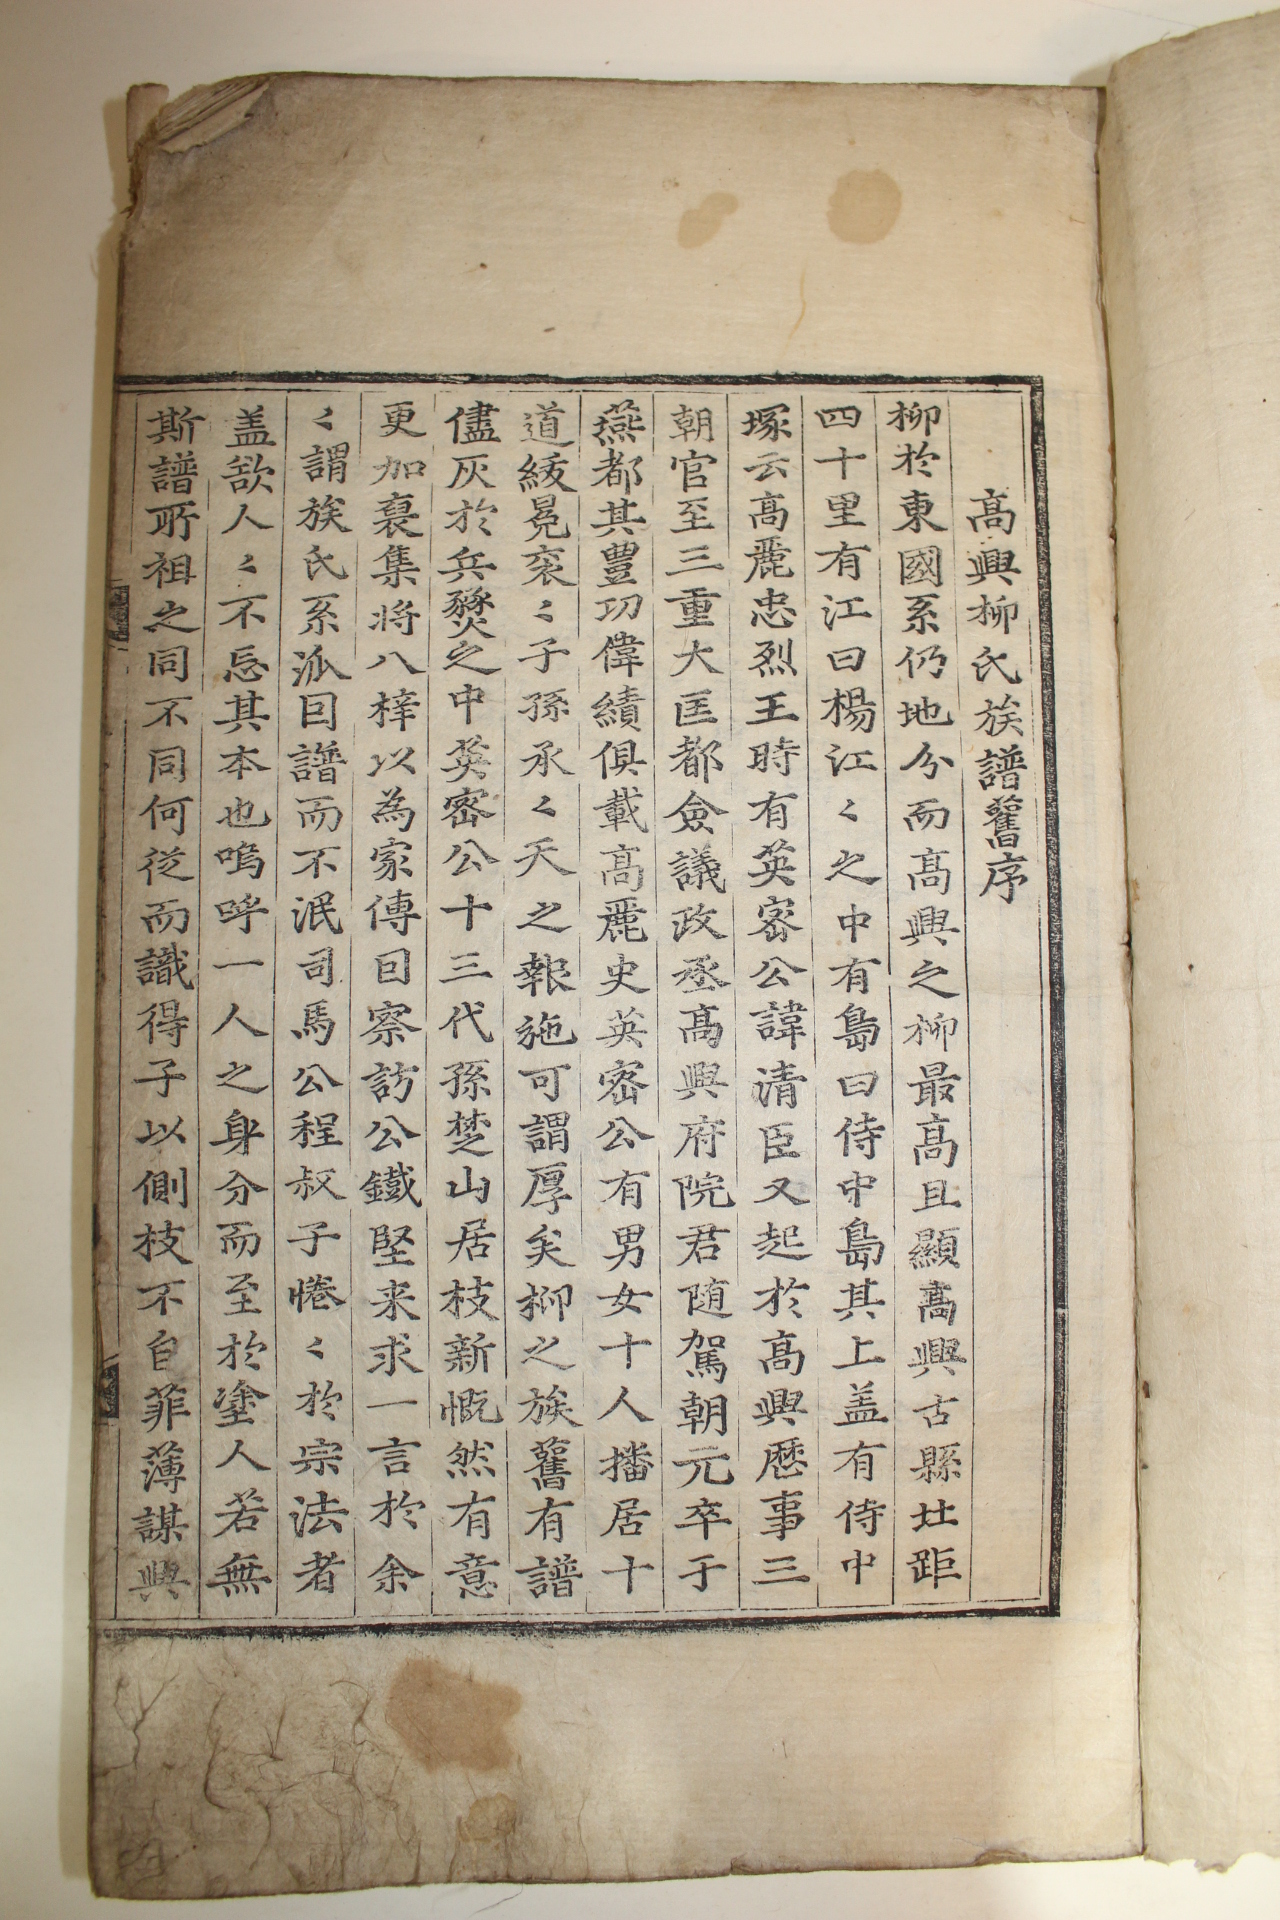 高興柳氏族譜舊序
柳於東國系仍地分而髙興之柳最髙且顯髙興古縣㘰距
四十里有江曰楊江〻之中有島曰侍中島其上盖有侍中
塚云高麗忠烈王時有英宻公諱清臣又起於高興歷事三
朝官至三重大匡都僉議政丞髙興府院君随駕朝元卒于
燕都其豊功偉績俱載高麗史英宻公有男女十人播居十
道綏冕衮〻子孫承〻天之報施可謂厚矣柳之族舊有譜
儘灰於兵燹之中英宻公十三代孫楚山居枝新慨然有意
更加裒集將入梓以為家傳囙察訪公鐵堅来求一言於余
〻謂族氏系派囙譜而不泯司馬公程叔子惓〻於宗法者
盖欲人〻不忘其本也嗚呼一人之身分而至於塗人若無
斯譜所祖之同不同何從而識得子以側枝不自菲薄謀興